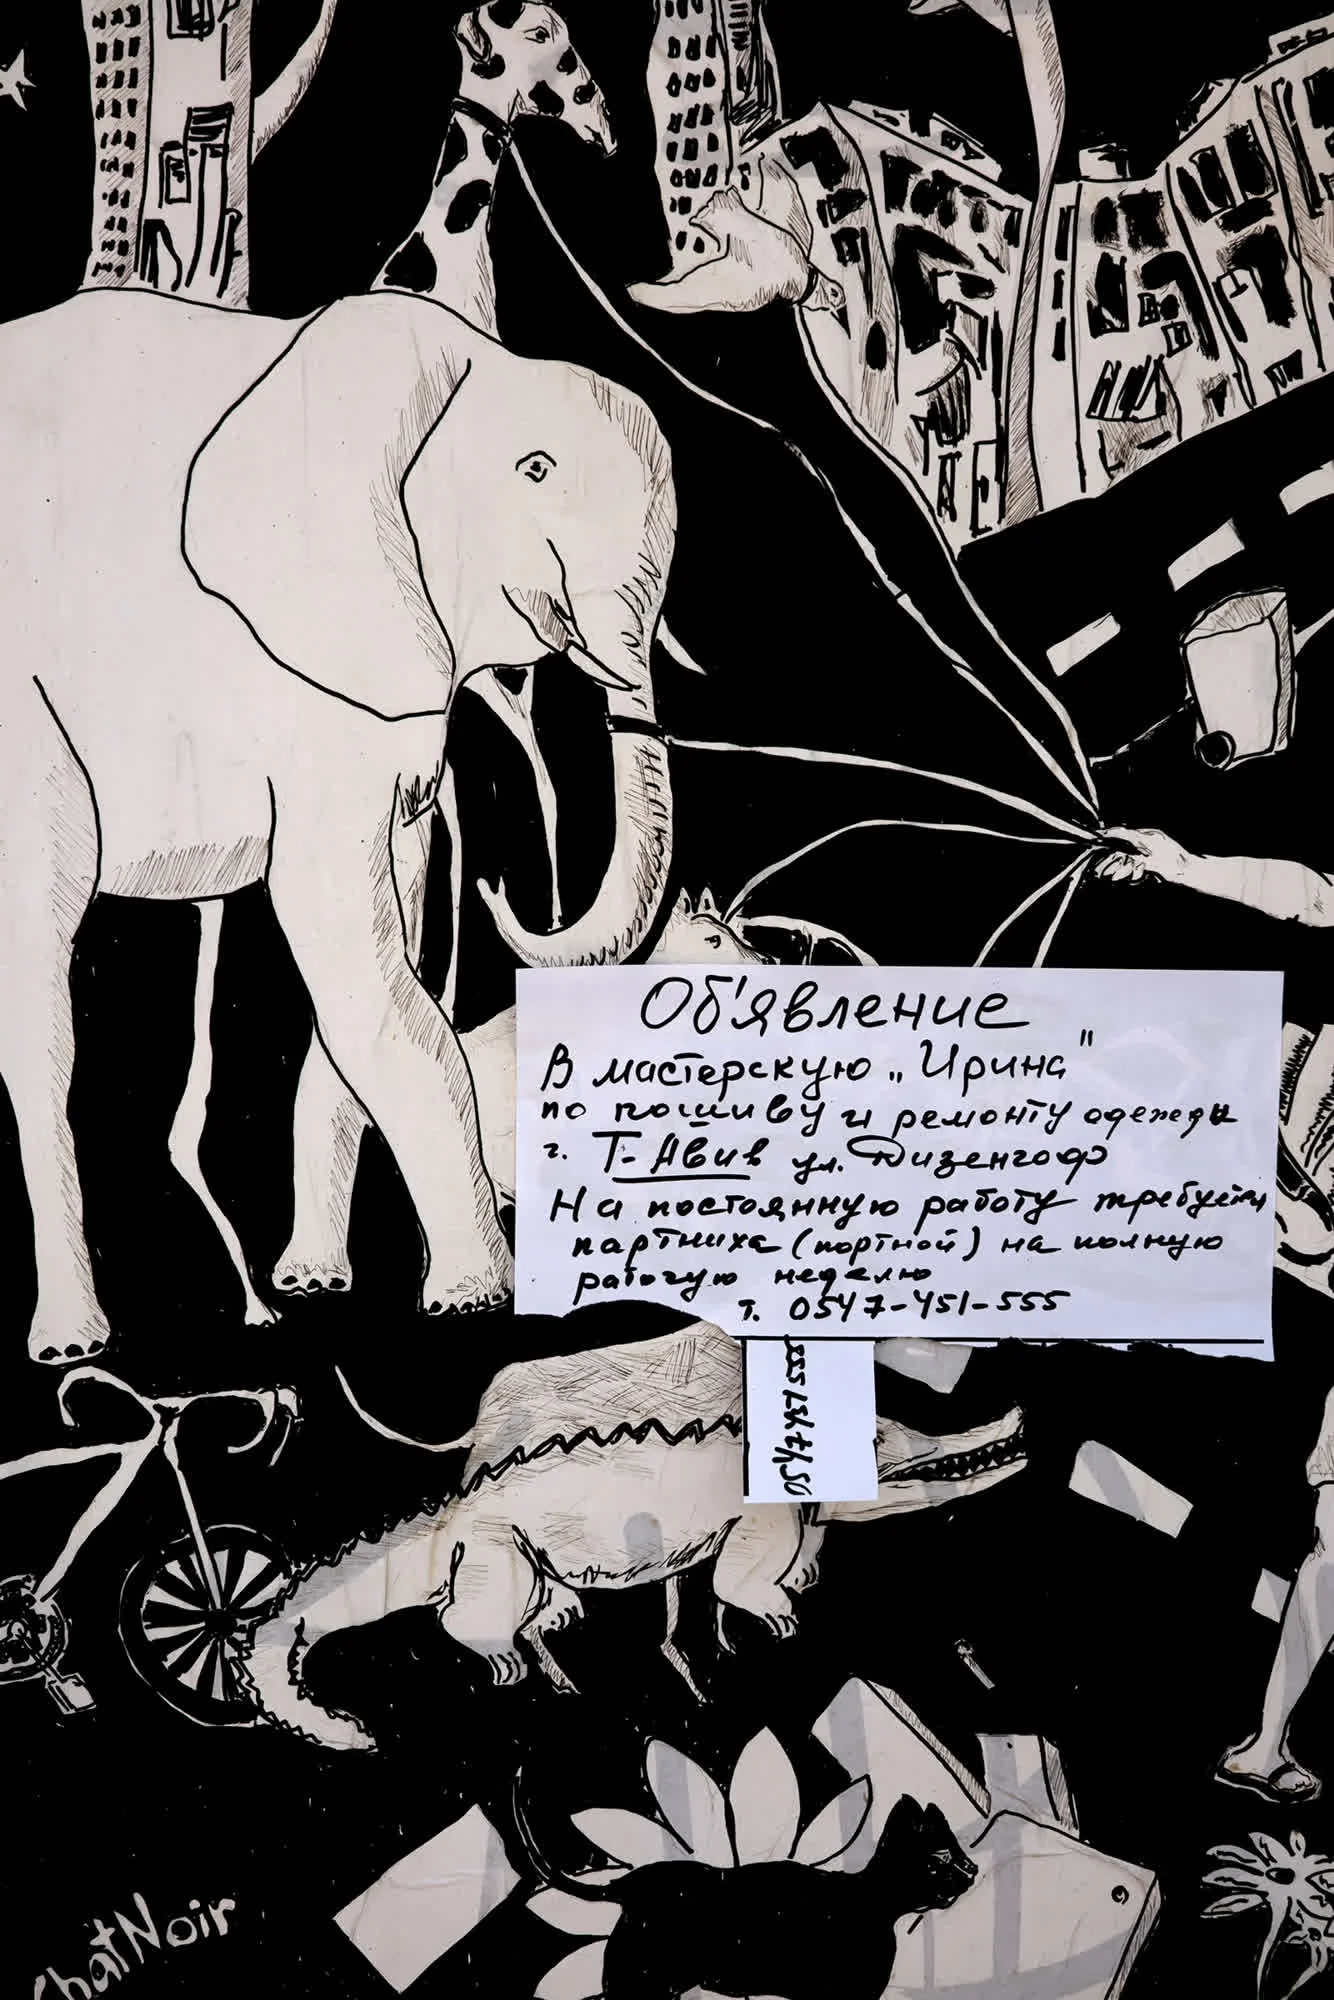 Об'явление
В мастерскую „Ирина"
по пошиву и ремонту одежды
г. Т-Авив ул. Дизенгоф
На постоянную работу требуется
партниха (портной) на полную
рабочую неделю
т. 0547-451-555
0547451555
ChatNoir